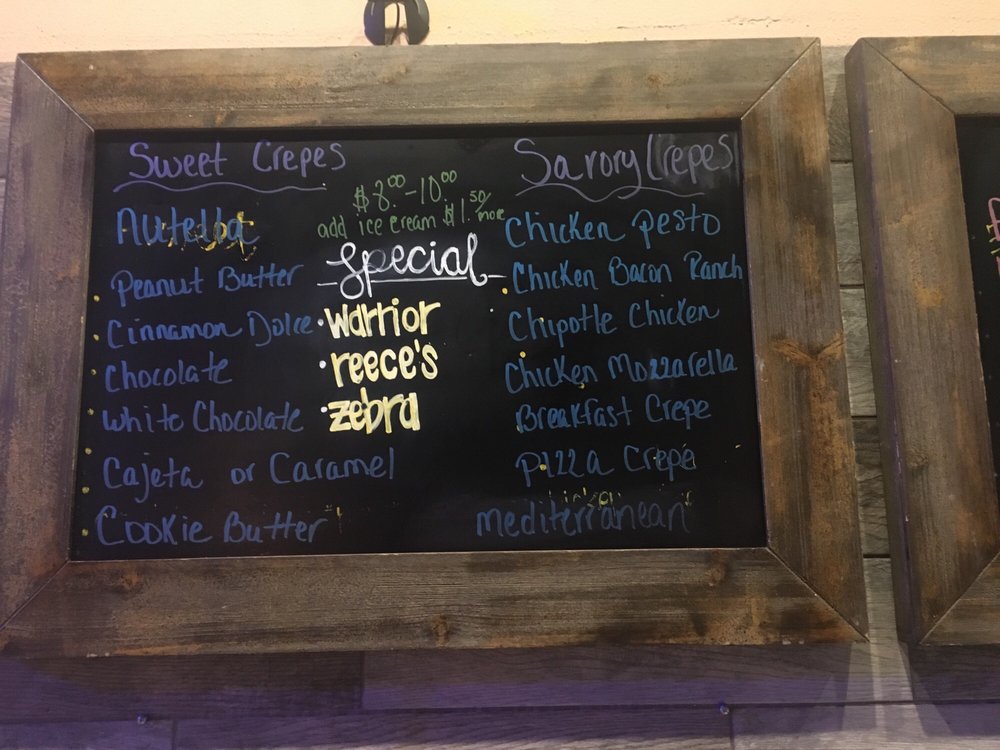 Sweet Crepes
Nutella
Peanut Butter
Cinnamon Dolce
Chocolate
White Chocolate
Cajeta or Caramel
Cookie Butter
$8.00-10.00
add ice cream $1.50/more
Special
warrior
reece's
zebra
Savory Crepes
Chicken Pesto
Chicken Bacon Ranch
Chipotle Chicken
Chicken Mozzarella
Breakfast Crepe
Pizza Crepe
mediterranean